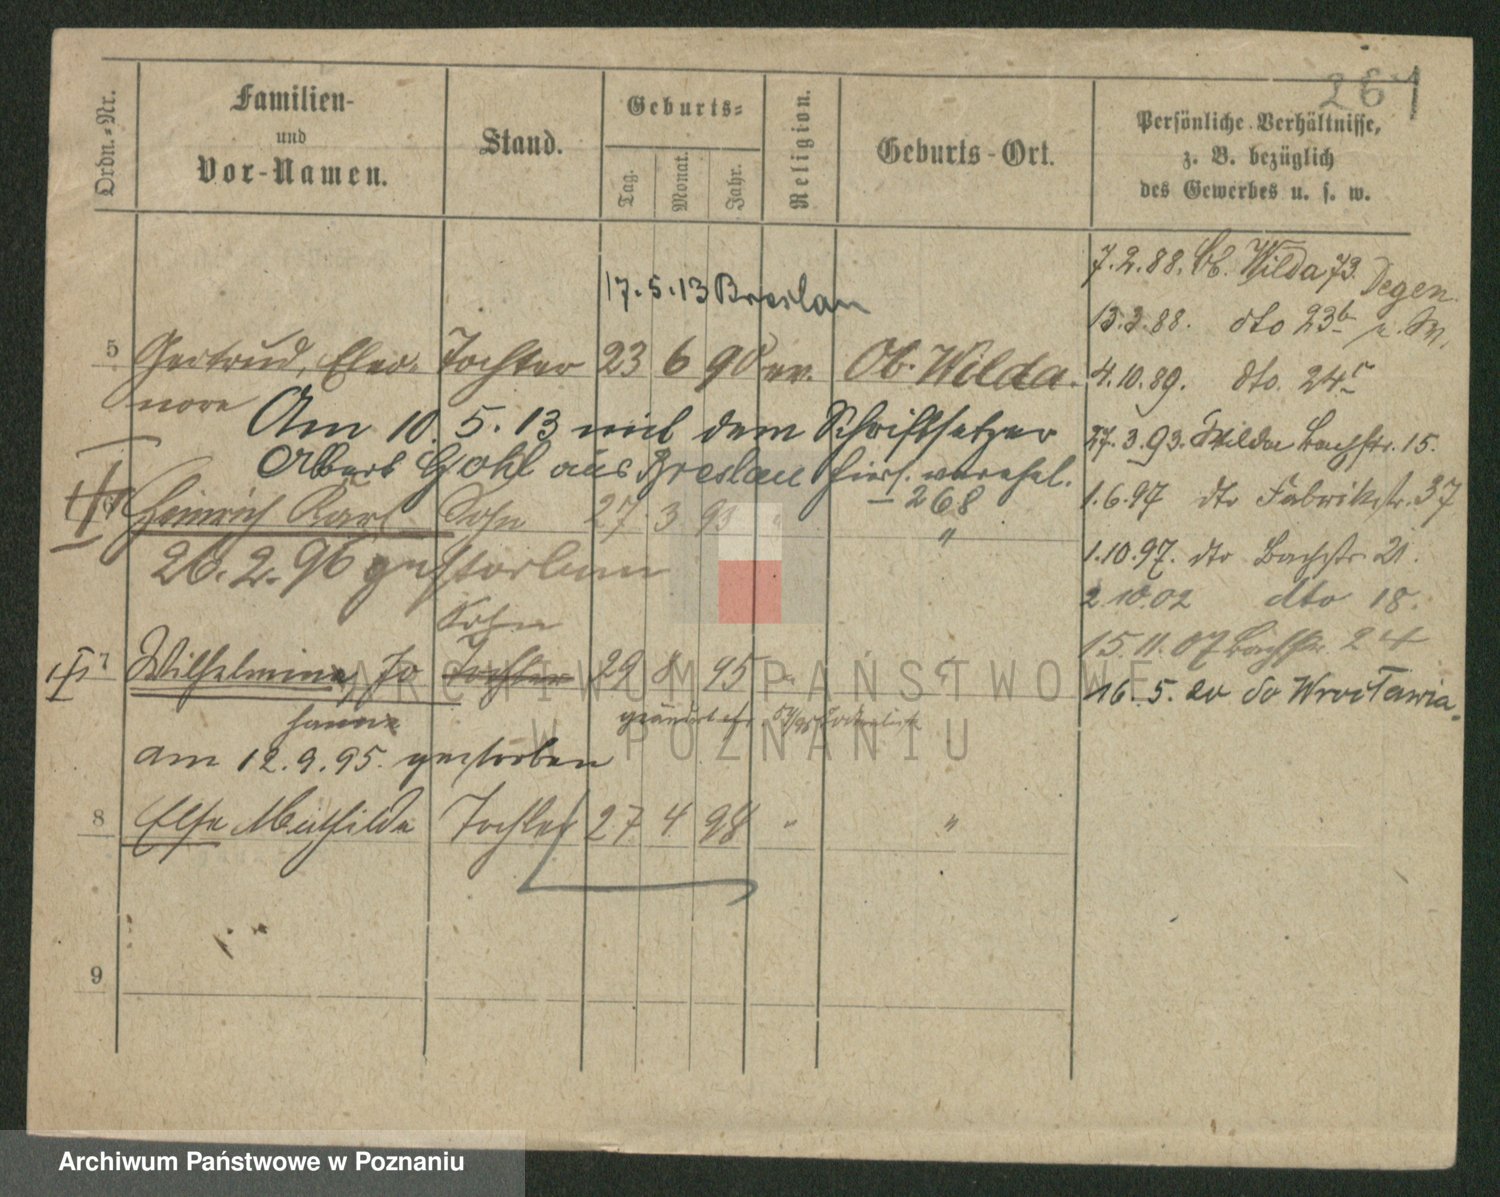 261
Ordn.-Nr.
Familien-
und
Vor-Namen.
Stand.
Geburts-
Tag.
Monat.
Jahr.
Religion.
Geburts-Ort.
Persönliche Verhältnisse,
z. B. bezüglich
des Gewerbes u. s. w.
17.5.13 Breslau
5 Gertrud, Eleo- Tochter 23 6 90 ev. Ob. Wilda.
nore
Am 10. 5. 13 mit dem Schriftsetzer
Albert Gohl aus Breslau hier verehel.
268
6 Heinrich Karl Sohn 27 3 93 " "
26.2.96 gestorben
Sohn
7 Wilhelmine Jo Tochter 29 8 95 " "
hanne
am 12.9.95. gestorben
8 Else Mathilde Tochter 27 4 98 " "
9
7.2.88. Ob. Wilda 73. Degen
13.3.88. dto 23b
4.10.89. dto. 24
27.3.93. Wilda Bachstr. 15.
1.6.97 dto Fabrikstr. 37
1.10.97. dto Bachstr 21.
2.10.02 dto 18.
15.11.07 Bachstr. 24
16.5.20 do Wrocławia.
ARCHIWUM PAŃSTWOWE
W POZNANIU
Archiwum Państwowe w Poznaniu